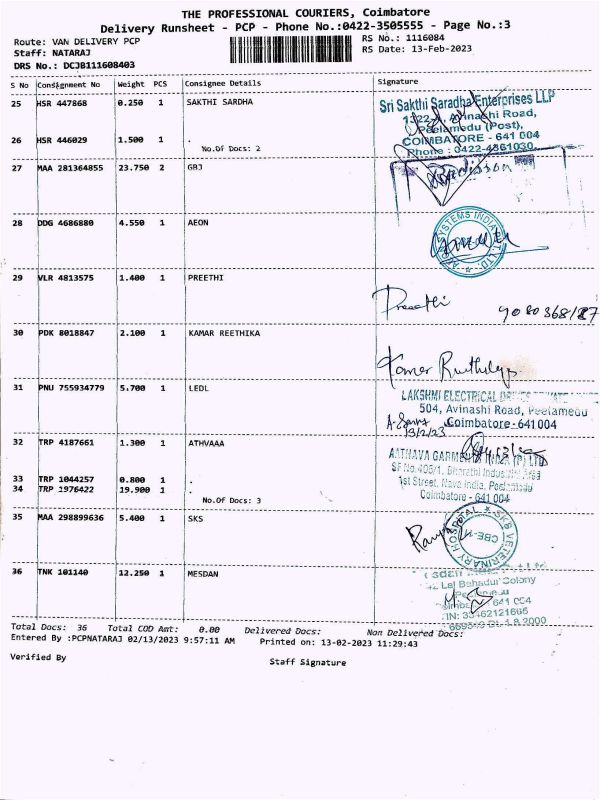 THE PROFESSIONAL COURIERS, Coimbatore
Delivery Runsheet - PCP - Phone No.:0422-3505555 - Page No.:3
Route: VAN DELIVERY PCP
RS No.: 1116084
Staff: NATARAJ
RS Date: 13-Feb-2023
DRS No.: DCJB111608403
S No Consignment No Weight PCS Consignee Details Signature
25 HSR 447868 0.250 1 SAKTHI SARDHA
Sri Sakthi Saradha Enterprises LLP
Avinashi Road,
Peelamedu (Post),
COIMBATORE - 641 004
Phone : 0422-4361030
26 HSR 446029 1.500 1 .
No.Of Docs: 2
27 MAA 281364855 23.750 2 GBJ
Radisson
28 DDG 4686880 4.550 1 AEON
SYSTEMS INDIA PVT. LTD.
29 VLR 4813575 1.400 1 PREETHI
Preethi
30 PDK 8018847 2.100 1 KAMAR REETHIKA
Kamar
31 PNU 755934779 5.700 1 LEDL
LAKSHMI ELECTRICAL
504, Avinashi Road, Peelamedu
Coimbatore-641004
13/2/23
32 TRP 4187661 1.300 1 ATHVAAA
1st Street, Nava India,
Coimbatore - 641 004
33 TRP 1044257 0.800 1 .
34 TRP 1976422 19.900 1 .
No.Of Docs: 3
35 MAA 298899636 5.400 1 SKS
SKB VETERINARY HOSPITAL
CBE-14
36 TNK 101140 12.250 1 MESDAN
Lal Bahadur Colony
641 004
Total Docs: 36 Total COD Amt: 0.00 Delivered Docs: Non Delivered Docs:
Entered By :PCPNATARAJ 02/13/2023 9:57:11 AM Printed on: 13-02-2023 11:29:43
Verified By
Staff Signature